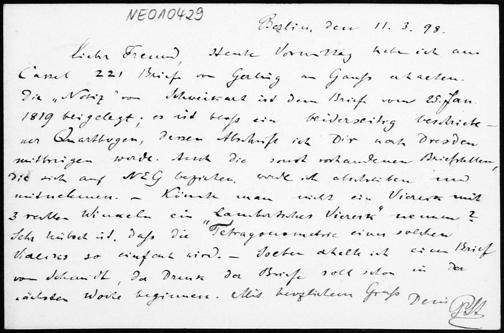 NE010429
Berlin, den 11. 3. 98.
Lieber Freund, Heute Vormittag habe ich aus
Cassel 221 Briefe von Gerling an Gauß erhalten.
Die „Notiz" von Schweikart ist dem Brief vom 25. Jan.
1819 beigelegt; es ist bloß ein beiderseitig beschriebe-
ner Quartbogen, dessen Abschrift ich Dir nach Dresden
mitbringen werde. Auch die sonst vorhandenen Briefstellen,
die sich auf NEG beziehen, werde ich abschreiben und
mitnehmen. – Könnte man nicht ein Viereck mit
3 rechten Winkeln ein „Lambertsches Viereck" nennen?
Sehr hübsch ist, daß die Tetragonometrie eines solchen
Vierecks so einfach wird. – Soeben erhalte ich einen Brief
von Schmidt, der Druck der Briefe soll schon in der
nächsten Woche beginnen. Mit herzlichem Gruß Dein